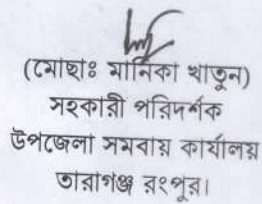 (মোছাঃ মানিকা খাতুন)
সহকারী পরিদর্শক
উপজেলা সমবায় কার্যালয়
তারাগঞ্জ রংপুর।